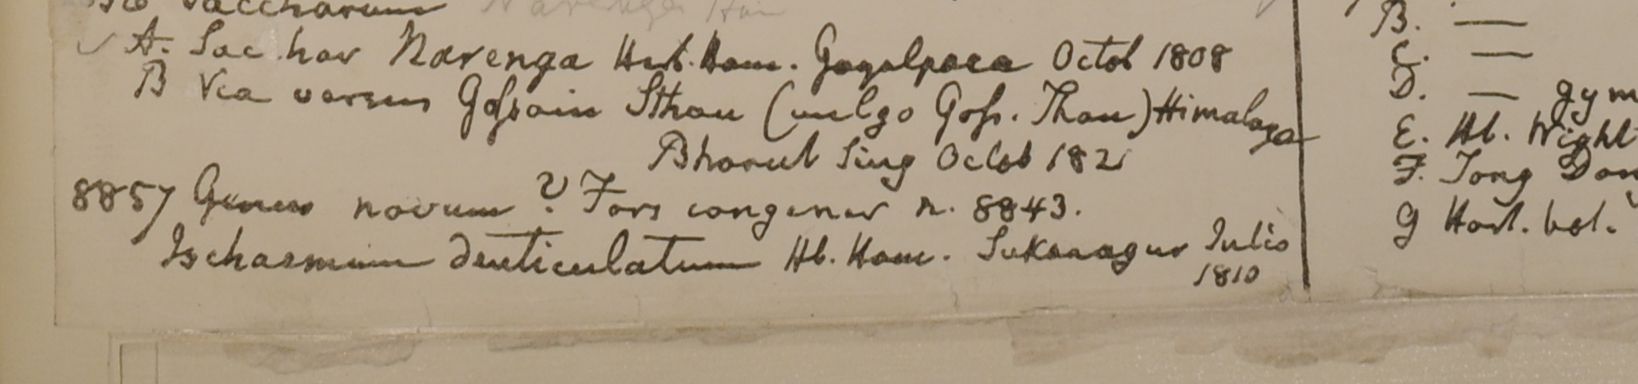 Saccharum Narenga Ham
✓ A. Sac. har Narenga Herb. Ham. Goyalpara Octob 1808
B Via versus Gossain Sthan (vulgo Goss. Than) Himalaya
Bharut Sing Octob 1821
8857 Genus novum? Fors congener n. 8843.
Ischaemum denticulatum Hb. Ham. Sukanagur Julio
1810
B. —
C. —
D. — gym
E. Hb. Wight
F. Tong Don
G Hort. bot.